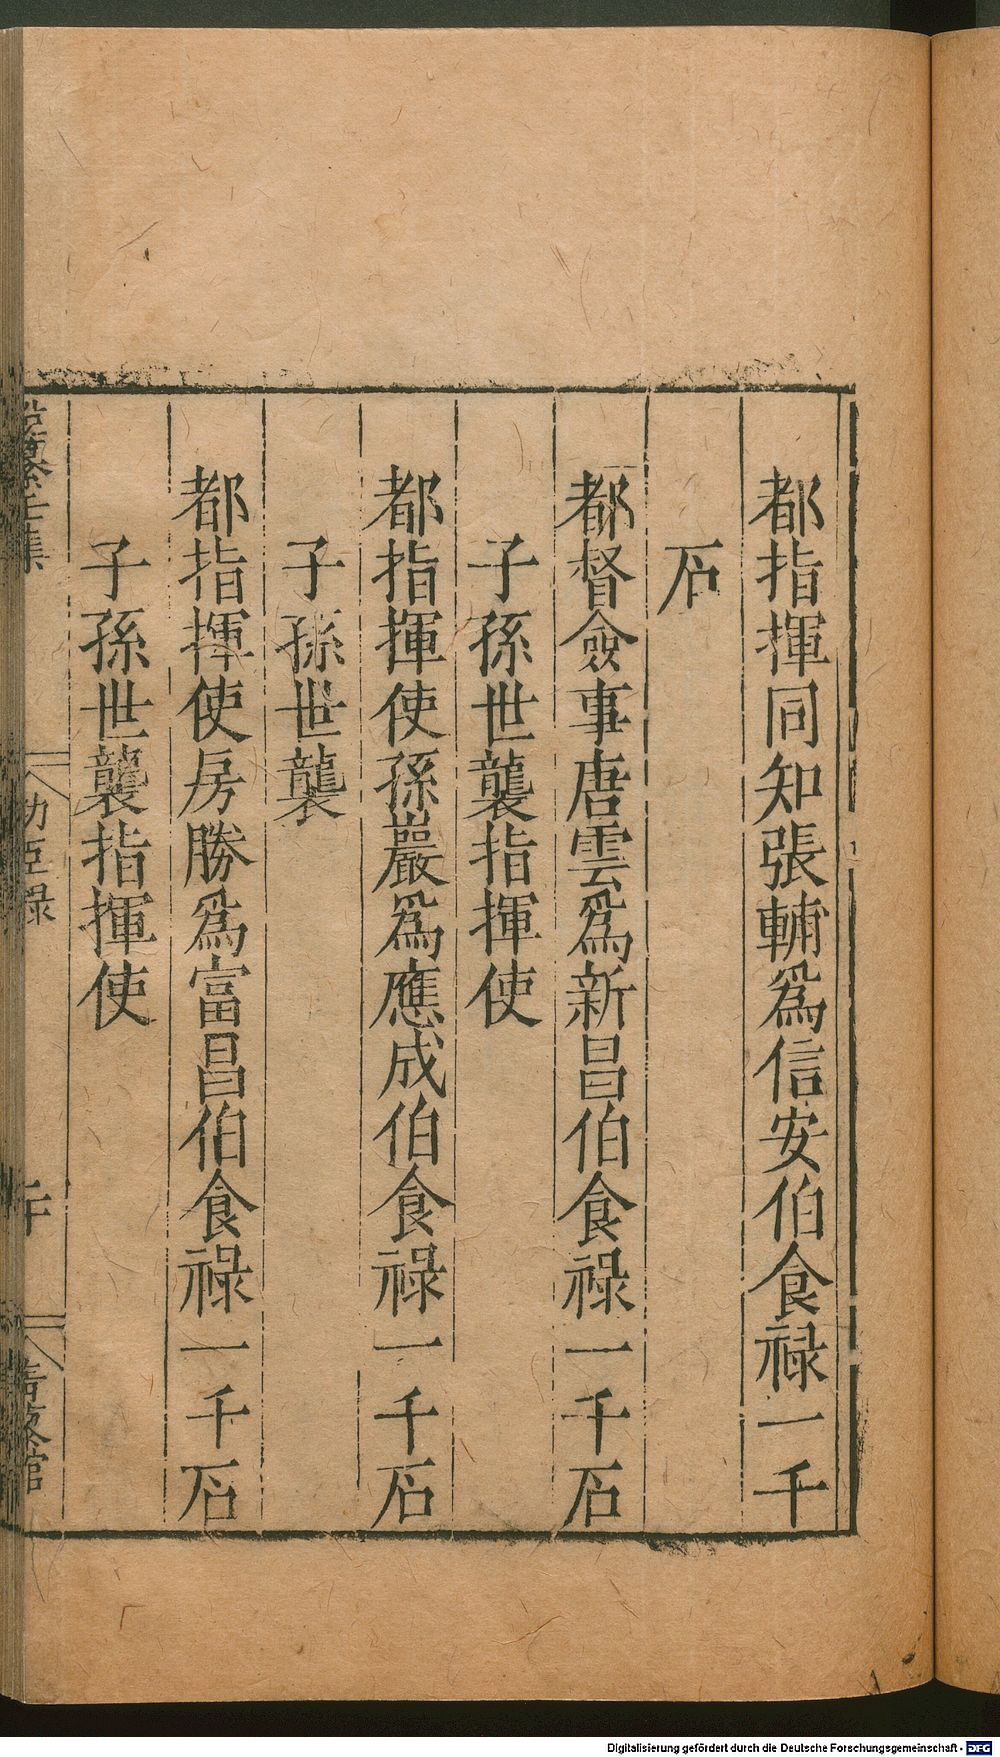 都指揮同知張輔爲信安伯食祿一千
石
都督僉事唐雲爲新昌伯食祿一千石
子孫世襲指揮使
都指揮使孫巖爲應成伯食祿一千石
子孫世襲
都指揮使房勝爲富昌伯食祿一千石
子孫世襲指揮使
功臣錄
Digitalisierung gefördert durch die Deutsche Forschungsgemeinschaft - DFG